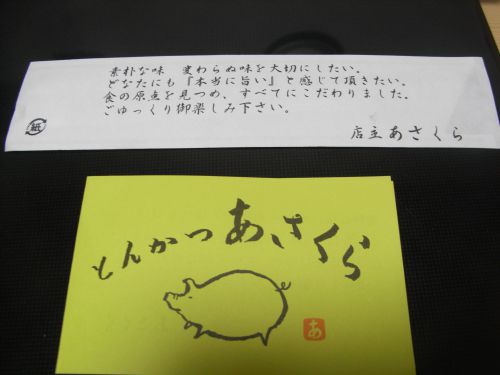 素朴な味 変わらぬ味を大切にしたい。
どなたにも『本当に旨い』と感じて頂きたい。
食の原点を見つめ、すべてにこだわりました。
ごゆっくり御楽しみ下さい。
店主 あさくら
紙
とんかつ あさくら
あ